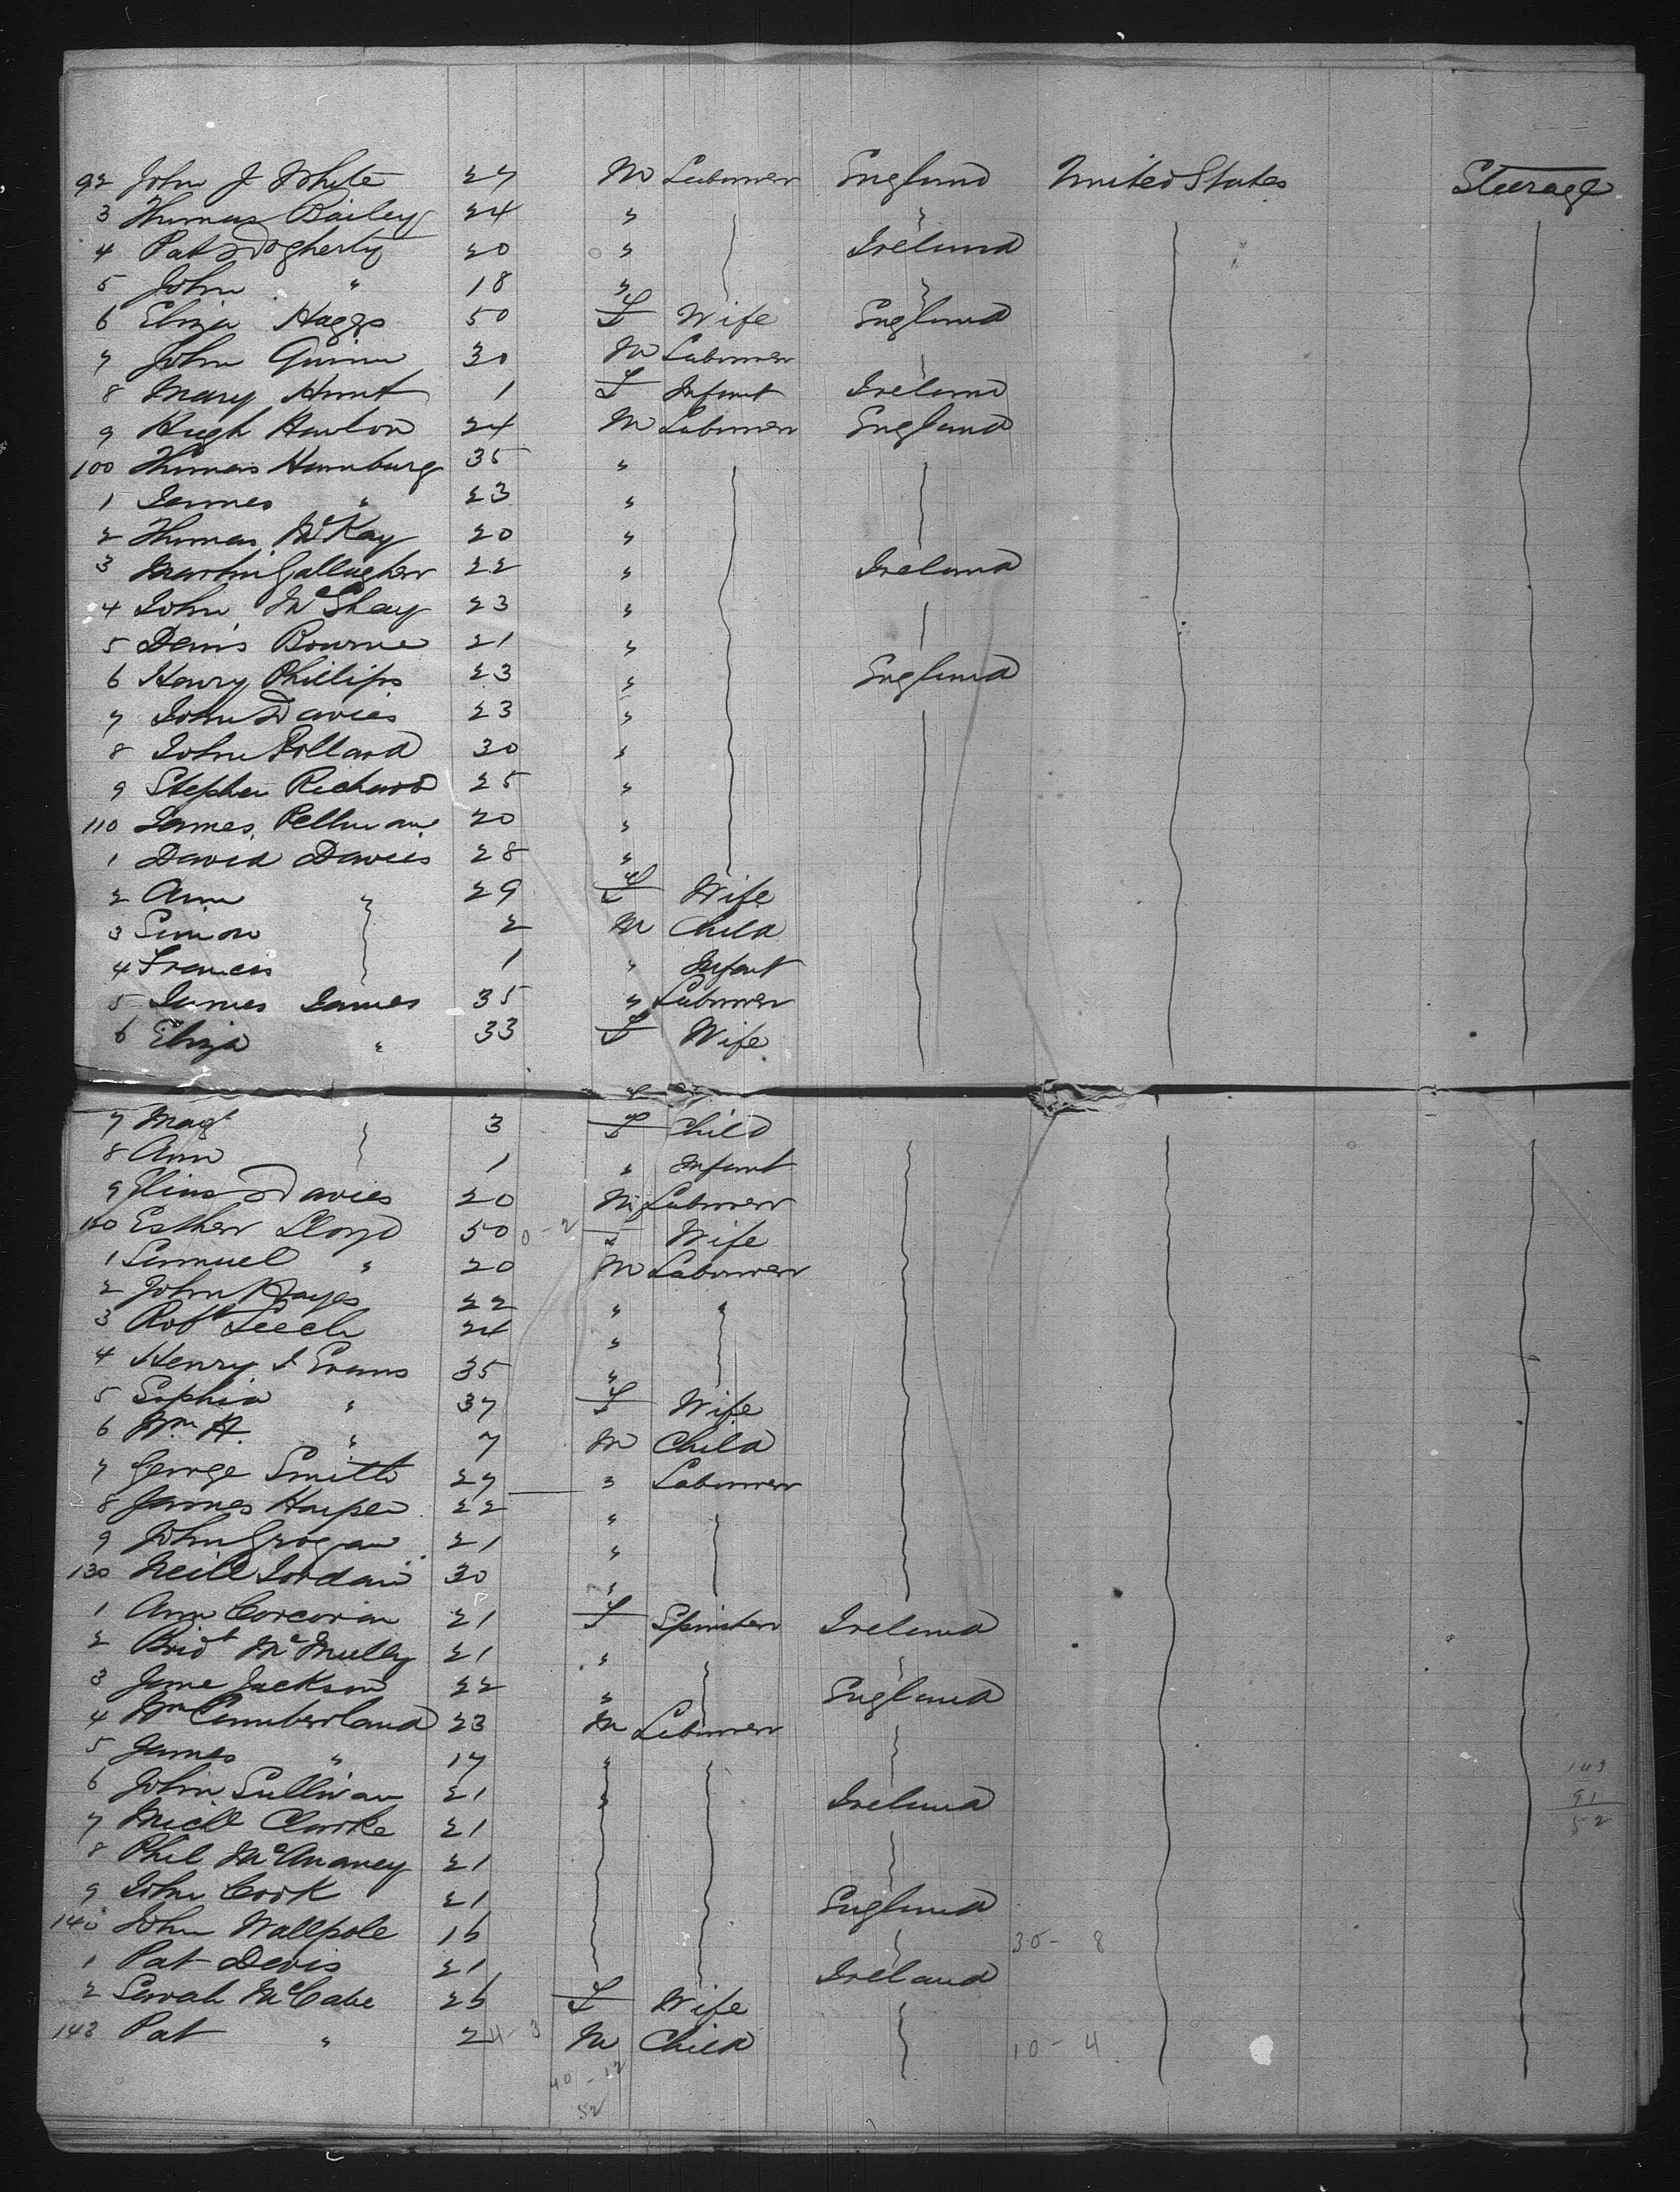 92 John J White 27 M Labourer England United States Steerage
3 Thomas Bailey 24 " "
4 Pat Dogherty 20 " Ireland
5 John " 18 " "
6 Eliza Haggs 50 F Wife England
7 John Quinn 30 M Labourer
8 Mary Hunt 1 F Infant Ireland
9 Hugh Hanlon 24 M Labourer England
100 Thomas Hamburg 35 "
1 James " 23 "
2 Thomas McKay 20 "
3 Martin Gallagher 22 " Ireland
4 John McShay 23 "
5 Denis Bourne 21 "
6 Henry Phillips 23 " England
7 John Davies 23 "
8 John Pollard 30 "
9 Stephen Richard 25 "
110 James Pellman 20 "
1 David Davies 28 "
2 Ann " 29 F Wife
3 Simon 2 M Child
4 Francis 1 " Infant
5 James James 35 " Labourer
6 Eliza " 33 F Wife
7 Magt 3 F Child
8 Ann 1 " Infant
9 Davies 20 M Labourer
120 Esther Lloyd 50 0-2 F Wife
1 Samuel " 20 M Labourer
2 John Hayes 22 " "
3 Robt Leech 24 "
4 Henry J Evans 35 "
5 Sophia " 37 F Wife
6 Wm H. " 7 M Child
7 George Smith 27 " Labourer
8 James Harper 22 "
9 John Grogan 21 "
130 Neill Jordan 30 "
1 Ann Corcoran 21 F Spinster Ireland
2 Bridt McMully 21 "
3 Jane Jackson 22 " England
4 Wm Cumberland 23 M Labourer
5 James " 17 "
6 John Sullivan 21 " Ireland
7 Michl Clarke 21
8 Phil McAnaney 21
9 John Cook 21 England
140 John Wallpole 16
1 Pat Devis 21 Ireland
2 Sarah McCabe 26 F Wife
143 Pat " 2 4-3 M Child
143
91
52
30-8
10-4
40-12
52